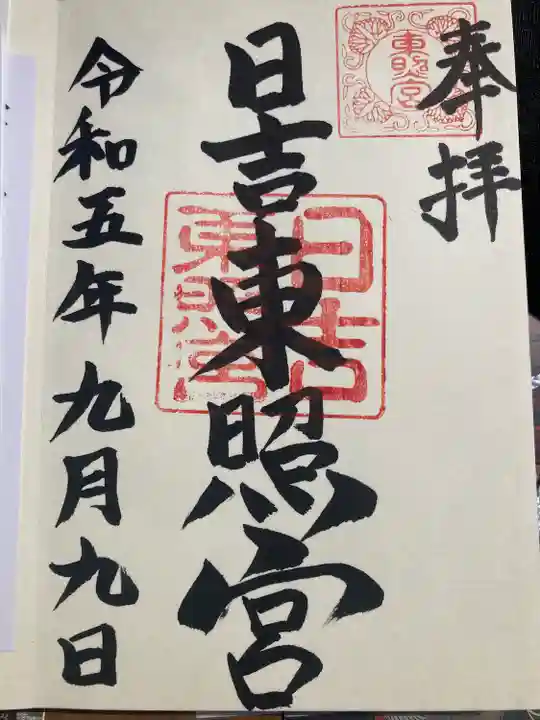 奉拝
東照宮
日吉東照宮
日吉
東照宮
令和五年九月九日